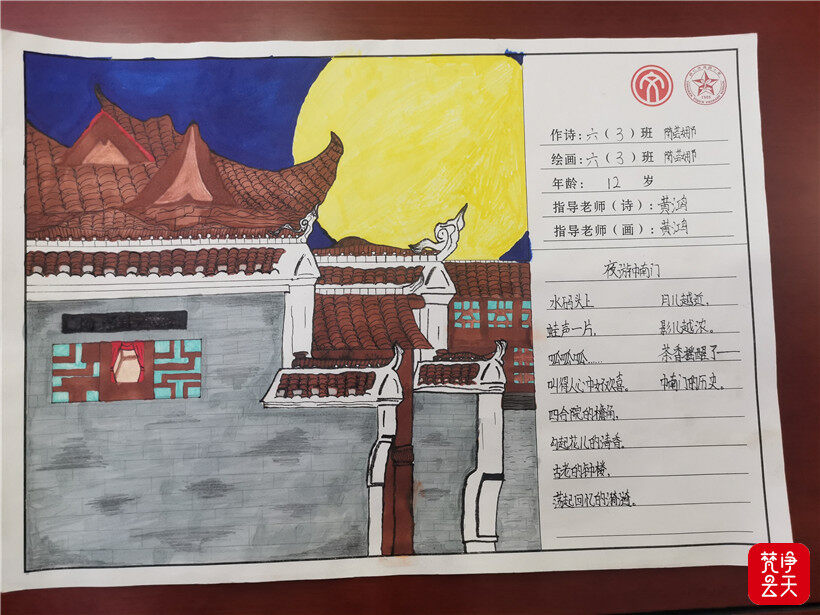 作诗：六（3）班
绘画：六（3）班
年龄： 12 岁
指导老师（诗）：黄江
指导老师（画）：黄江
夜游中南门
水码头上
蛙声一片，
呱呱呱……
叫得人心中好欢喜。
四合院的檐角，
勾起花儿的清香。
古老的钟楼，
荡起回忆的涟漪。
月儿越近，
影儿越浓。
茶香摇醒了——
中南门的历史。
梵净
云天